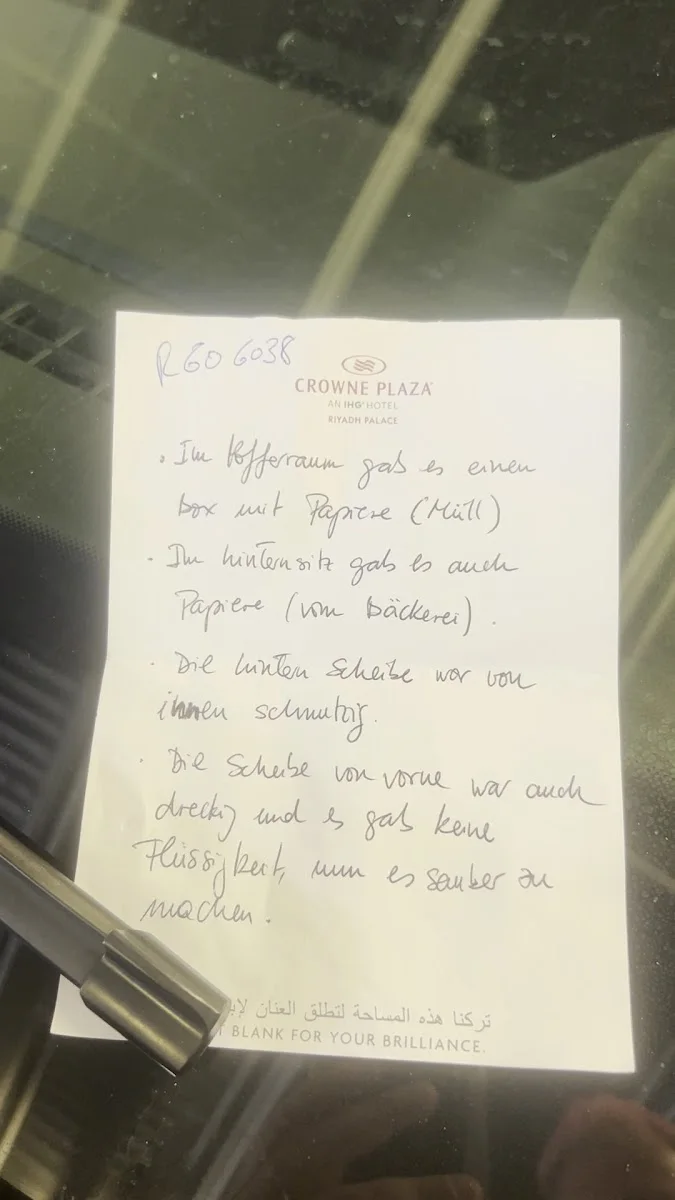 R60 6038
CROWNE PLAZA
AN IHG® HOTEL
RIYADH PALACE
• Im Kofferraum gab es einen
box mit Papiere (Müll)
• Im hintern sitz gab es auch
Papiere (vom Bäckerei).
• Die hintern Scheibe war von
innen schmutzig.
• Die Scheibe von vorne war auch
dreckig und es gab keine
Flüssigkeit, um es sauber zu
machen.
تركنا هذه المساحة لتطلق العنان
BLANK FOR YOUR BRILLIANCE.